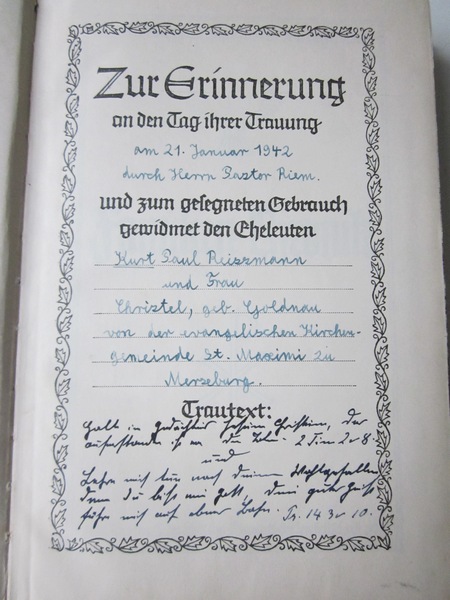 Zur Erinnerung
an den Tag ihrer Trauung
am 21. Januar 1942
durch Herrn Pastor Riem.
und zum gesegneten Gebrauch
gewidmet den Eheleuten
Kurt Paul Reiszmann
und Frau
Christel, geb. Goldnau
von der evangelischen Kirchen-
gemeinde St. Maximi zu
Merseburg.
Trautext:
Halt in Gedächtnis Jesum Christum, der
auferstanden ist von den Toten. 2 Tim 2 v 8.
und
Lehre mich tun nach deinem Wohlgefallen
denn du bist mein Gott, dein guter Geist
führe mich auf ebner Bahn. Ps. 143 v 10.